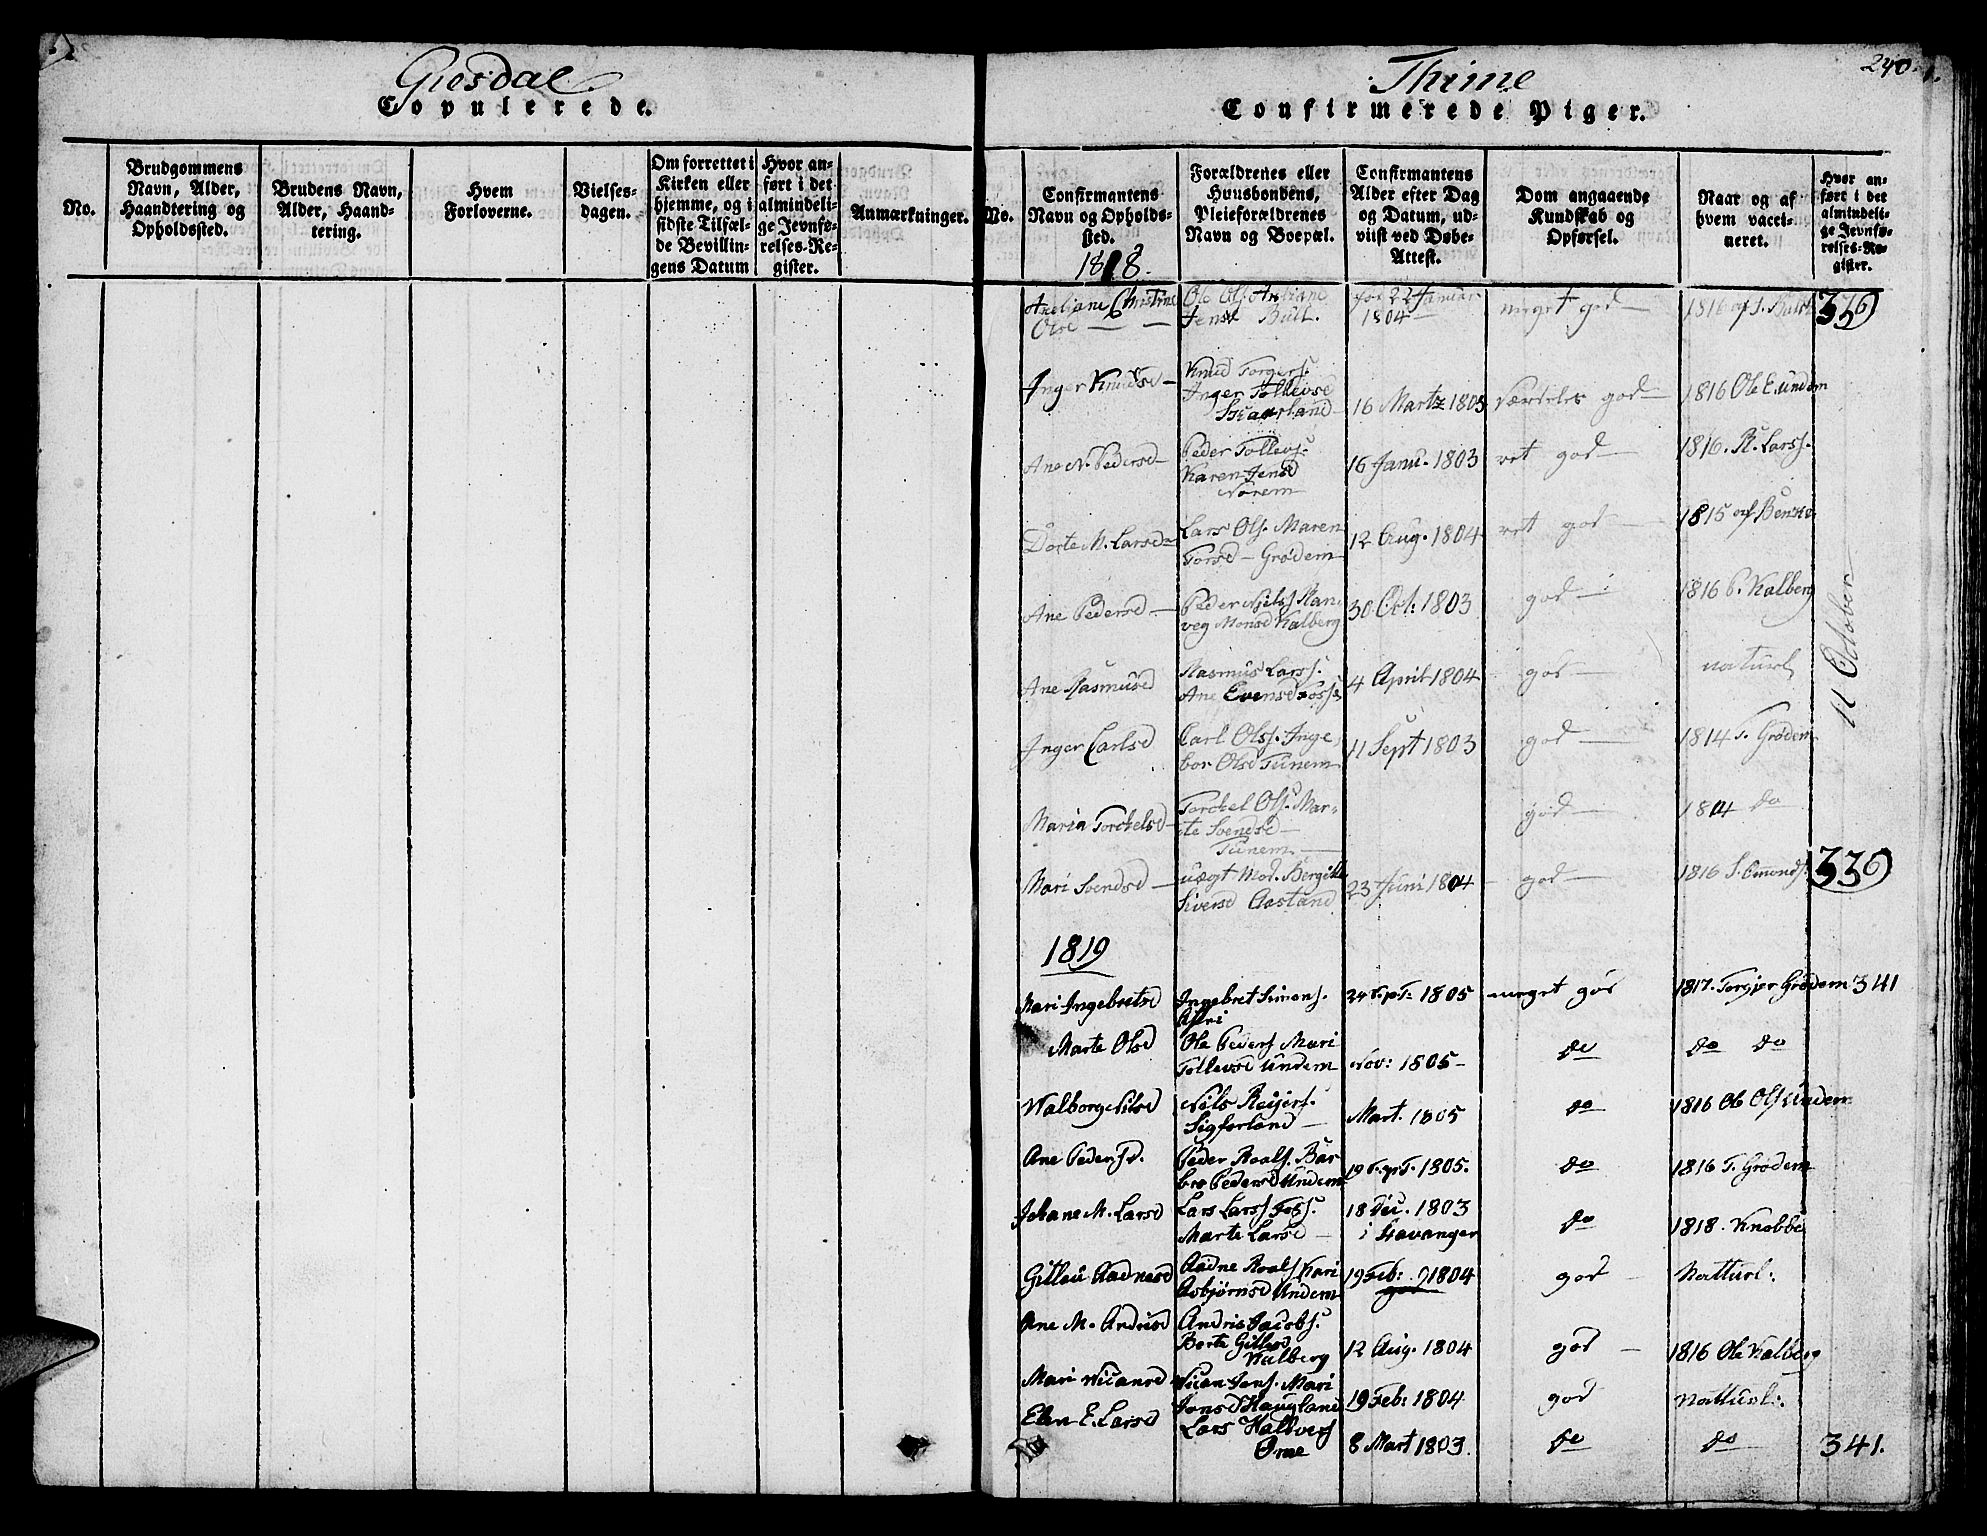 Giesdal
Copulerede.
No.
Brudgommens
Navn, Alder,
Haandtering og
Opholdssted.
Brudens Navn,
Alder, Haand-
tering.
Hvem
Forloverne.
Vielses-
dagen.
Om forrettet i
Kirken eller
hjemme, og i
sidste Tilfæl-
de Bevillin-
gens Datum
Hvor an-
ført i det
almindeli-
ge Jevnfø-
relses-Re-
gister.
Anmærkninger.
240
Thime
Confirmerede Piger.
No.
Confirmantens
Navn og Opholds-
sted.
Forældrenes eller
Huusbondens,
Pleieforældrenes
Navn og Boepæl.
Confirmantens
Alder efter Dag
og Datum, ud-
viist ved Døbe-
Attest.
Dom angaaende
Kundskab og
Opførsel.
Naar og af
hvem vacci-
neret.
Hvor an-
ført i det
almindeli-
ge Jevnfø-
relses-Re-
gister.
1818.
Christine
Olse
Ole Ols.
Jens Bull.
22 Januar
1804
meget god
1816 af J.
336
Inger Knudsd
Knud Torgers.
Inger Tollevsd
16 Martz 1805
særdeles god
1816 Ole E. undem
Ane N. Pedersd
Peder Tollevs.
Karen Jensd
Norem
16 Janu. 1803
ret god
1816. R. Larss.
Dorte M. Larsd
Lars Ols. Maren
Torsd Grødem
12 Aug. 1804
ret god
1815 af
Ane Pedersd
Peder Niels. Ran
veg Monsd Kalberg
30 Oct: 1803
god
1816 P. Kalberg
11 October
Ane Rasmusd
Rasmus Larss.
Ane Evensd
4 April 1804
god
naturl
Inger Carlsd
Carl Olss. Inge
bor Olsd Tunem
11 Sept 1803
god
1814 T. Grødem
Maria Torckelsd
Torckel Ols. Mar-
te Svendsd
Tunem
god
1814 do
Mari Svendsd
uægt Mod. Bergitte
Siversd
23 Juni 1804
god
1816 S.
336
1819
Mari Ingebretsd
Ingebret Simons.
24 1805
meget god
1817. Torger Grødem
341
Marte Olsd
Ole Peders Mari
Tollevsd Undem
Nov: 1805
do
do do
Walborg Nilsd
Nils Reiers.
Sigforland
Mart. 1805
do
1816 Ole Ols Undem
Ane Pedersd.
Peder Roals. Bar
bro Pedersd Undem
19 1805.
do
1816 T. Grødem
Johane M. Larsd
Lars Larss
Marte Larsd
18 Dec. 1803
i Stavanger
do
1818. Knobbe
Gitlou Aadnesd
Aadne Roals Kari
Asbjørnsd Undem
19 Feb: 1804
god
god
Natturl:
Ane M. Andrisd
Andris Jacobs.
Borte Gitlesd
Kalberg
12 Aug. 1804
god
1816 Ole Kalberg
Mari
Jens. Mari
Jonsd Haugland
19 Feb: 1804
god
Natturl:
Elen E. Larsd
Lars Halvors
Orre
8 Mart 1803.
do
do
341.